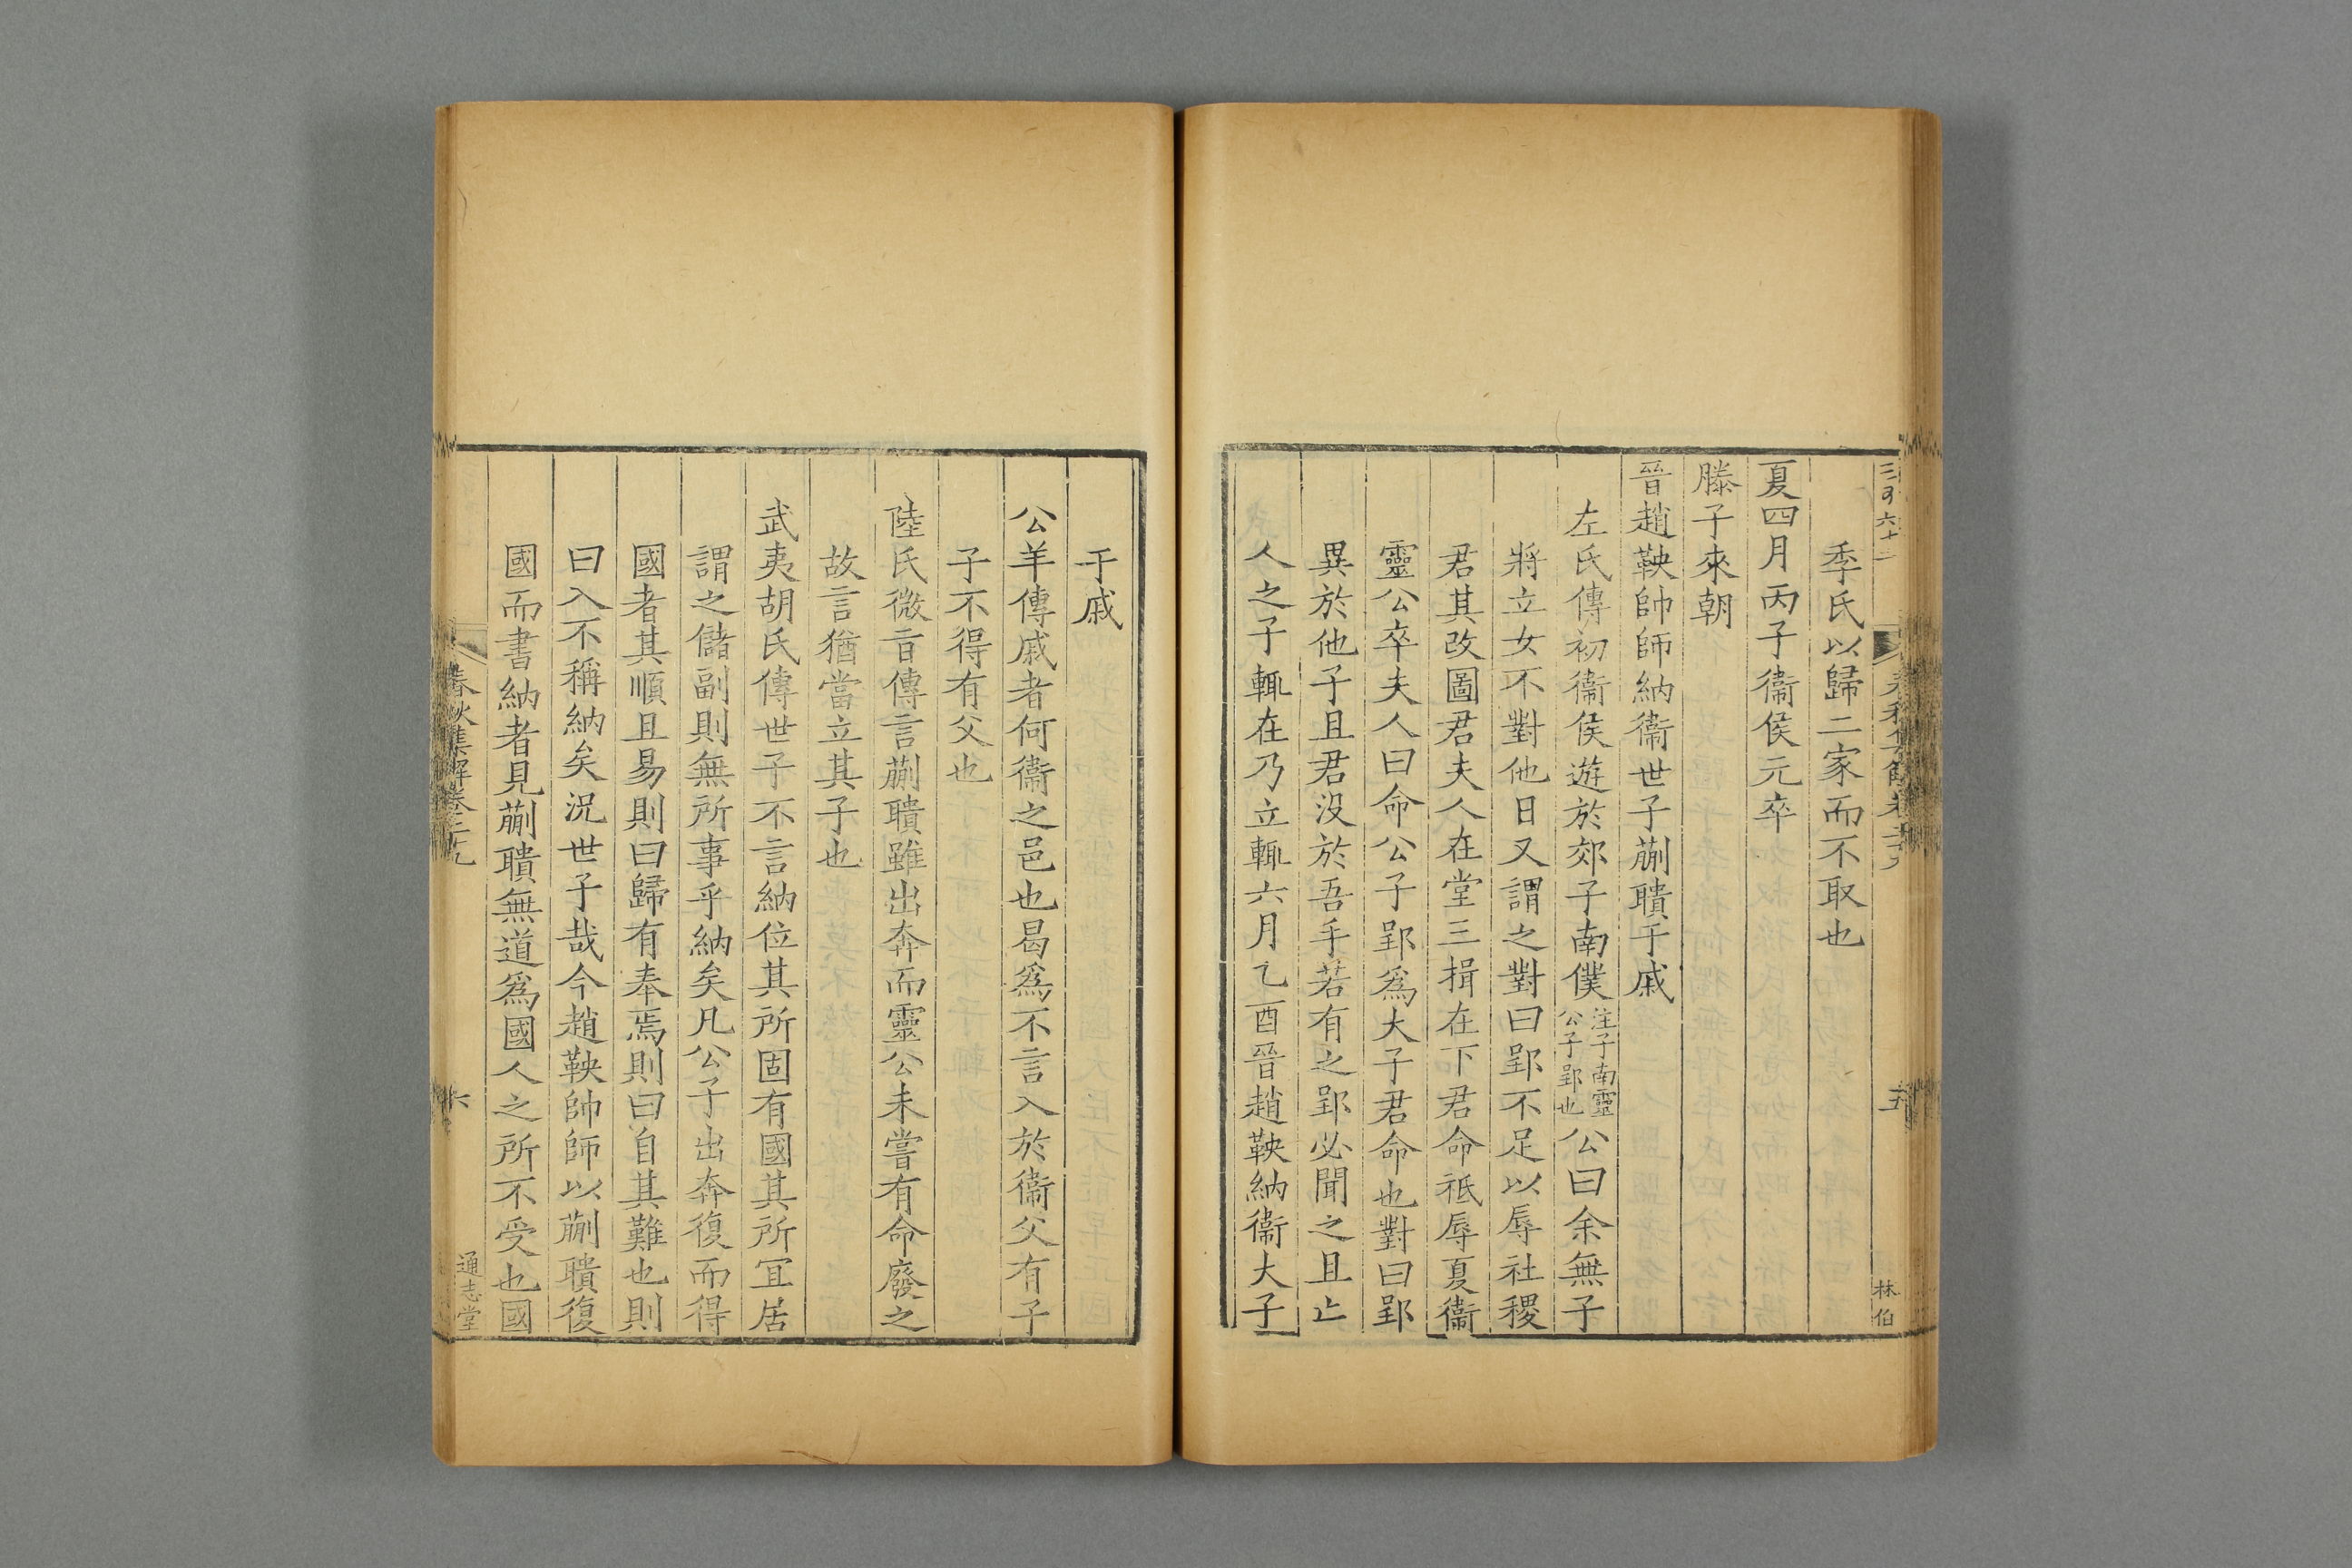 季氏以歸二家而不取也
夏四月丙子衞侯元卒
滕子來朝
晉趙鞅帥師納衞世子蒯聵于戚
左氏傳初衞侯遊於郊子南僕注子南靈公子郢也公曰余無子
將立女不對他日又謂之對曰郢不足以辱社稷
君其改圖君夫人在堂三揖在下君命祇辱夏衞
靈公卒夫人曰命公子郢爲大子君命也對曰郢
異於他子且君沒於吾手若有之郢必聞之且亡
人之子輒在乃立輒六月乙酉晉趙鞅納衞大子
林伯
于戚
公羊傳戚者何衞之邑也曷爲不言入於衞父有子
子不得有父也
陸氏微旨傳言蒯聵雖出奔而靈公未嘗有命廢之
故言猶當立其子也
武夷胡氏傳世子不言納位其所固有國其所宜居
謂之儲副則無所事乎納矣凡公子出奔復而得
國者其順且易則曰歸有奉焉則曰自其難也則
曰入不稱納矣況世子哉今趙鞅帥師以蒯聵復
國而書納者見蒯聵無道爲國人之所不受也國
春秋集解卷二十九
六
通志堂